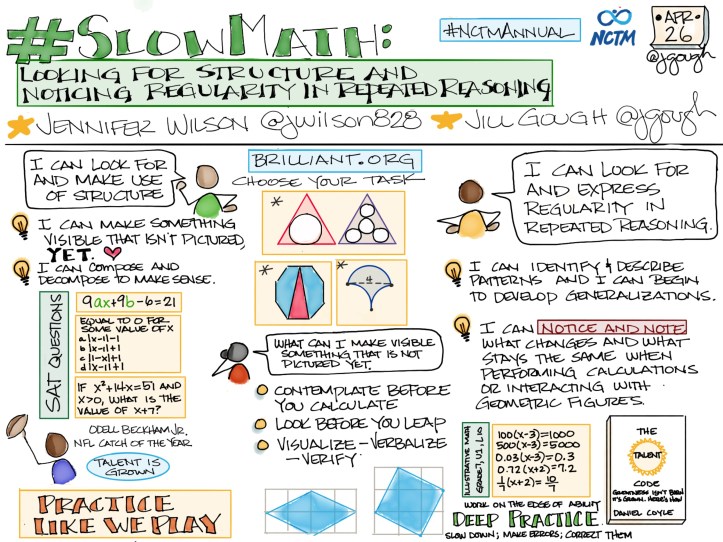 #SLOWMATH:
#NCTMANNUAL
NCTM
APR
26
@jgough
LOOKING FOR STRUCTURE AND
NOTICING REGULARITY IN REPEATED REASONING
JENNIFER WILSON @jwilson828
JILL GOUGH @jgough
I CAN LOOK FOR
AND MAKE USE
OF STRUCTURE
I CAN MAKE SOMETHING
VISIBLE THAT ISN'T PICTURED,
YET.
I CAN COMPOSE AND
DECOMPOSE TO MAKE SENSE.
SAT QUESTIONS
9ax+9b-6=21
EQUAL TO 0 FOR
SOME VALUE OF X
a|x-1|-1
b|x-1|+1
c|1-x|+1
d|x-1|+1
IF X²+14X=51 AND
X>0, WHAT IS THE
VALUE OF X+7?
ODELL BECKHAM JR,
NFL CATCH OF THE YEAR
TALENT IS
GROWN
PRACTICE
LIKE WE PLAY
BRILLIANT.ORG
CHOOSE YOUR TASK
*
*
*
4
WHAT CAN I MAKE VISIBLE
SOMETHING THAT IS NOT
PICTURED YET,
CONTEMPLATE BEFORE
YOU CALCULATE
LOOK BEFORE YOU LEAP
VISUALIZE - VERBALIZE
- VERIFY
I CAN LOOK FOR
AND EXPRESS
REGULARITY IN
REPEATED REASONING.
I CAN IDENTIFY & DESCRIBE
PATTERNS AND I CAN BEGIN
TO DEVELOP GENERALIZATIONS.
I CAN NOTICE AND NOTE
WHAT CHANGES AND WHAT
STAYS THE SAME WHEN
PERFORMING CALCULATIONS
OR INTERACTING WITH
GEOMETRIC FIGURES.
ILLUSTRATIVE MATH
GRADE 7, U1, L10
100(x-3)=1000
500(x-3)=5000
0.03(x-3)=0.3
0.72(x+2)=7.2
1/7(x+2)=10/7
THE
TALENT
CODE
GREATNESS ISN'T BORN
IT'S GROWN. HERE'S HOW
DANIEL COYLE
WORK ON THE EDGE OF ABILITY
DEEP PRACTICE.
SLOW DOWN; MAKE ERRORS; CORRECT THEM